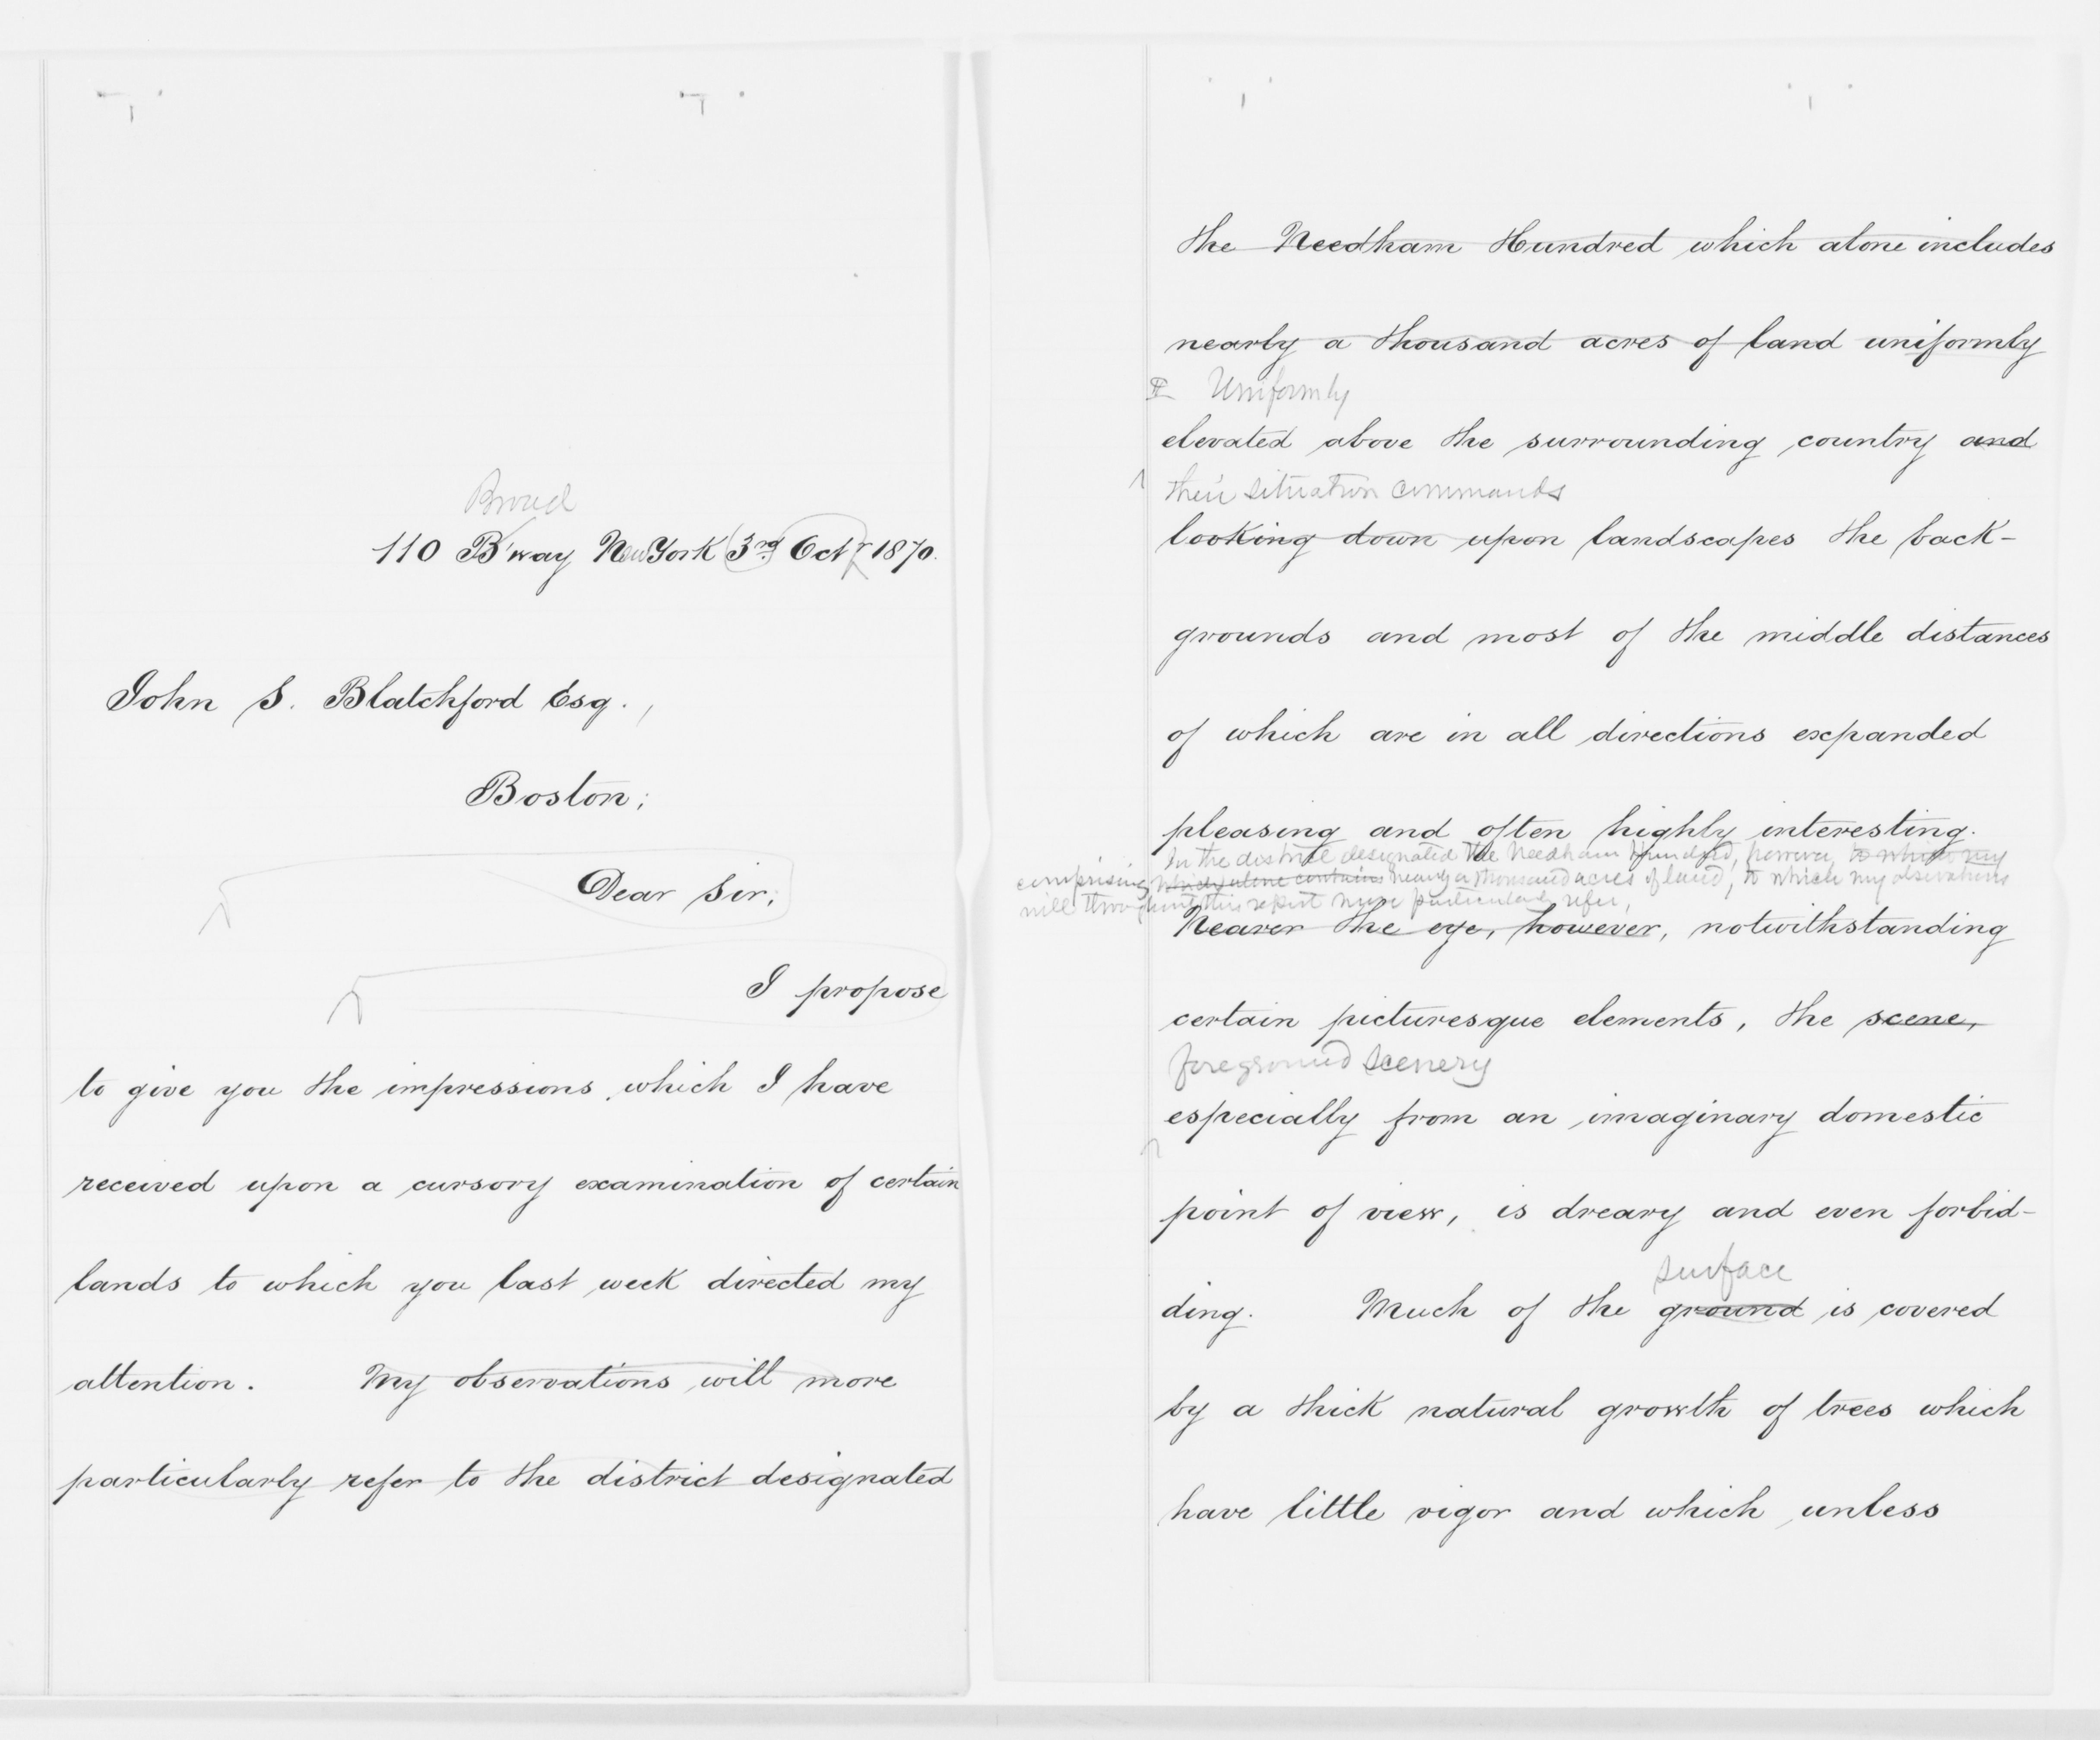 Broad
110 B'way New York 3rd Octr 1870.
John S. Blatchford Esq.,
Boston;
Dear Sir;
I propose
to give you the impressions which I have
received upon a cursory examination of certain
lands to which you last week directed my
attention. My observations will more
particularly refer to the district designated
the Needham Hundred which alone includes
nearly a thousand acres of land uniformly
Uniformly
elevated above the surrounding country and
their situation commands
looking down upon landscapes the back-
grounds and most of the middle distances
of which are in all directions expanded
pleasing and often highly interesting.
In the district designated the Needham Hundred, however, to which my
comprising which alone contains nearly a thousand acres of land, to which my observations
will throughout this report more particularly refer,
Nearer the eye, however, notwithstanding
certain picturesque elements, the scene,
foreground scenery
especially from an imaginary domestic
point of view, is dreary and even forbid-
surface
ding. Much of the ground is covered
by a thick natural growth of trees which
have little vigor and which unless